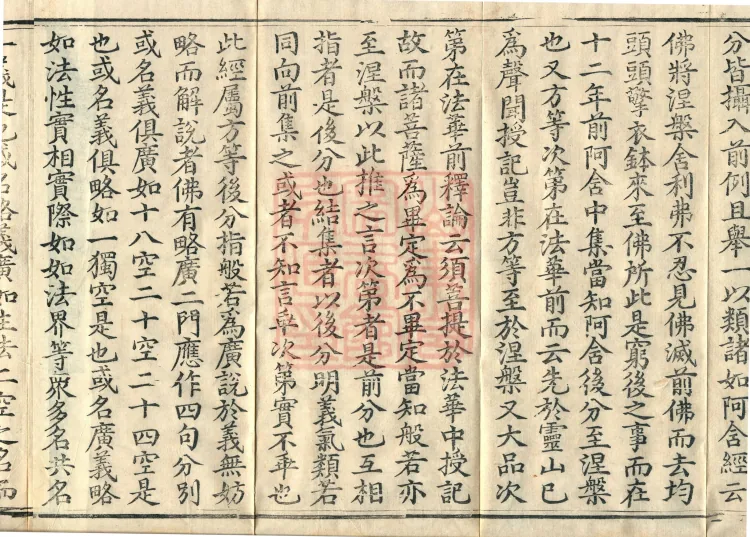 分皆攝入前例且舉一以類諸如阿含經云
佛將涅槃舍利弗不忍見佛滅前佛而去均
頭頭擎衣鉢來至佛所此是窮後之事而在
十二年前阿含中集當知阿含後分至涅槃
也又方等次第在法華前而云先於靈山已
爲聲聞授記豈非方等至於涅槃又大品次
第在法華前釋論云須菩提於法華中授記
故而諸菩薩爲畢定爲不畢定當知般若亦
至涅槃以此推之言次第者是前分也互相
指者是後分也結集者以後分明義氣類若
同向前集之或者不知言乖次第實不乖也
此經屬方等後分指般若爲廣說於義無妨
略而解說者佛有略廣二門應作四句分別
或名義俱廣如十八空二十空二十四空是
也或名義俱略如一獨空是也或名廣義略
如法性實相實際如如法界等衆多名共名
一義是也或名略義廣如性法二空之名而